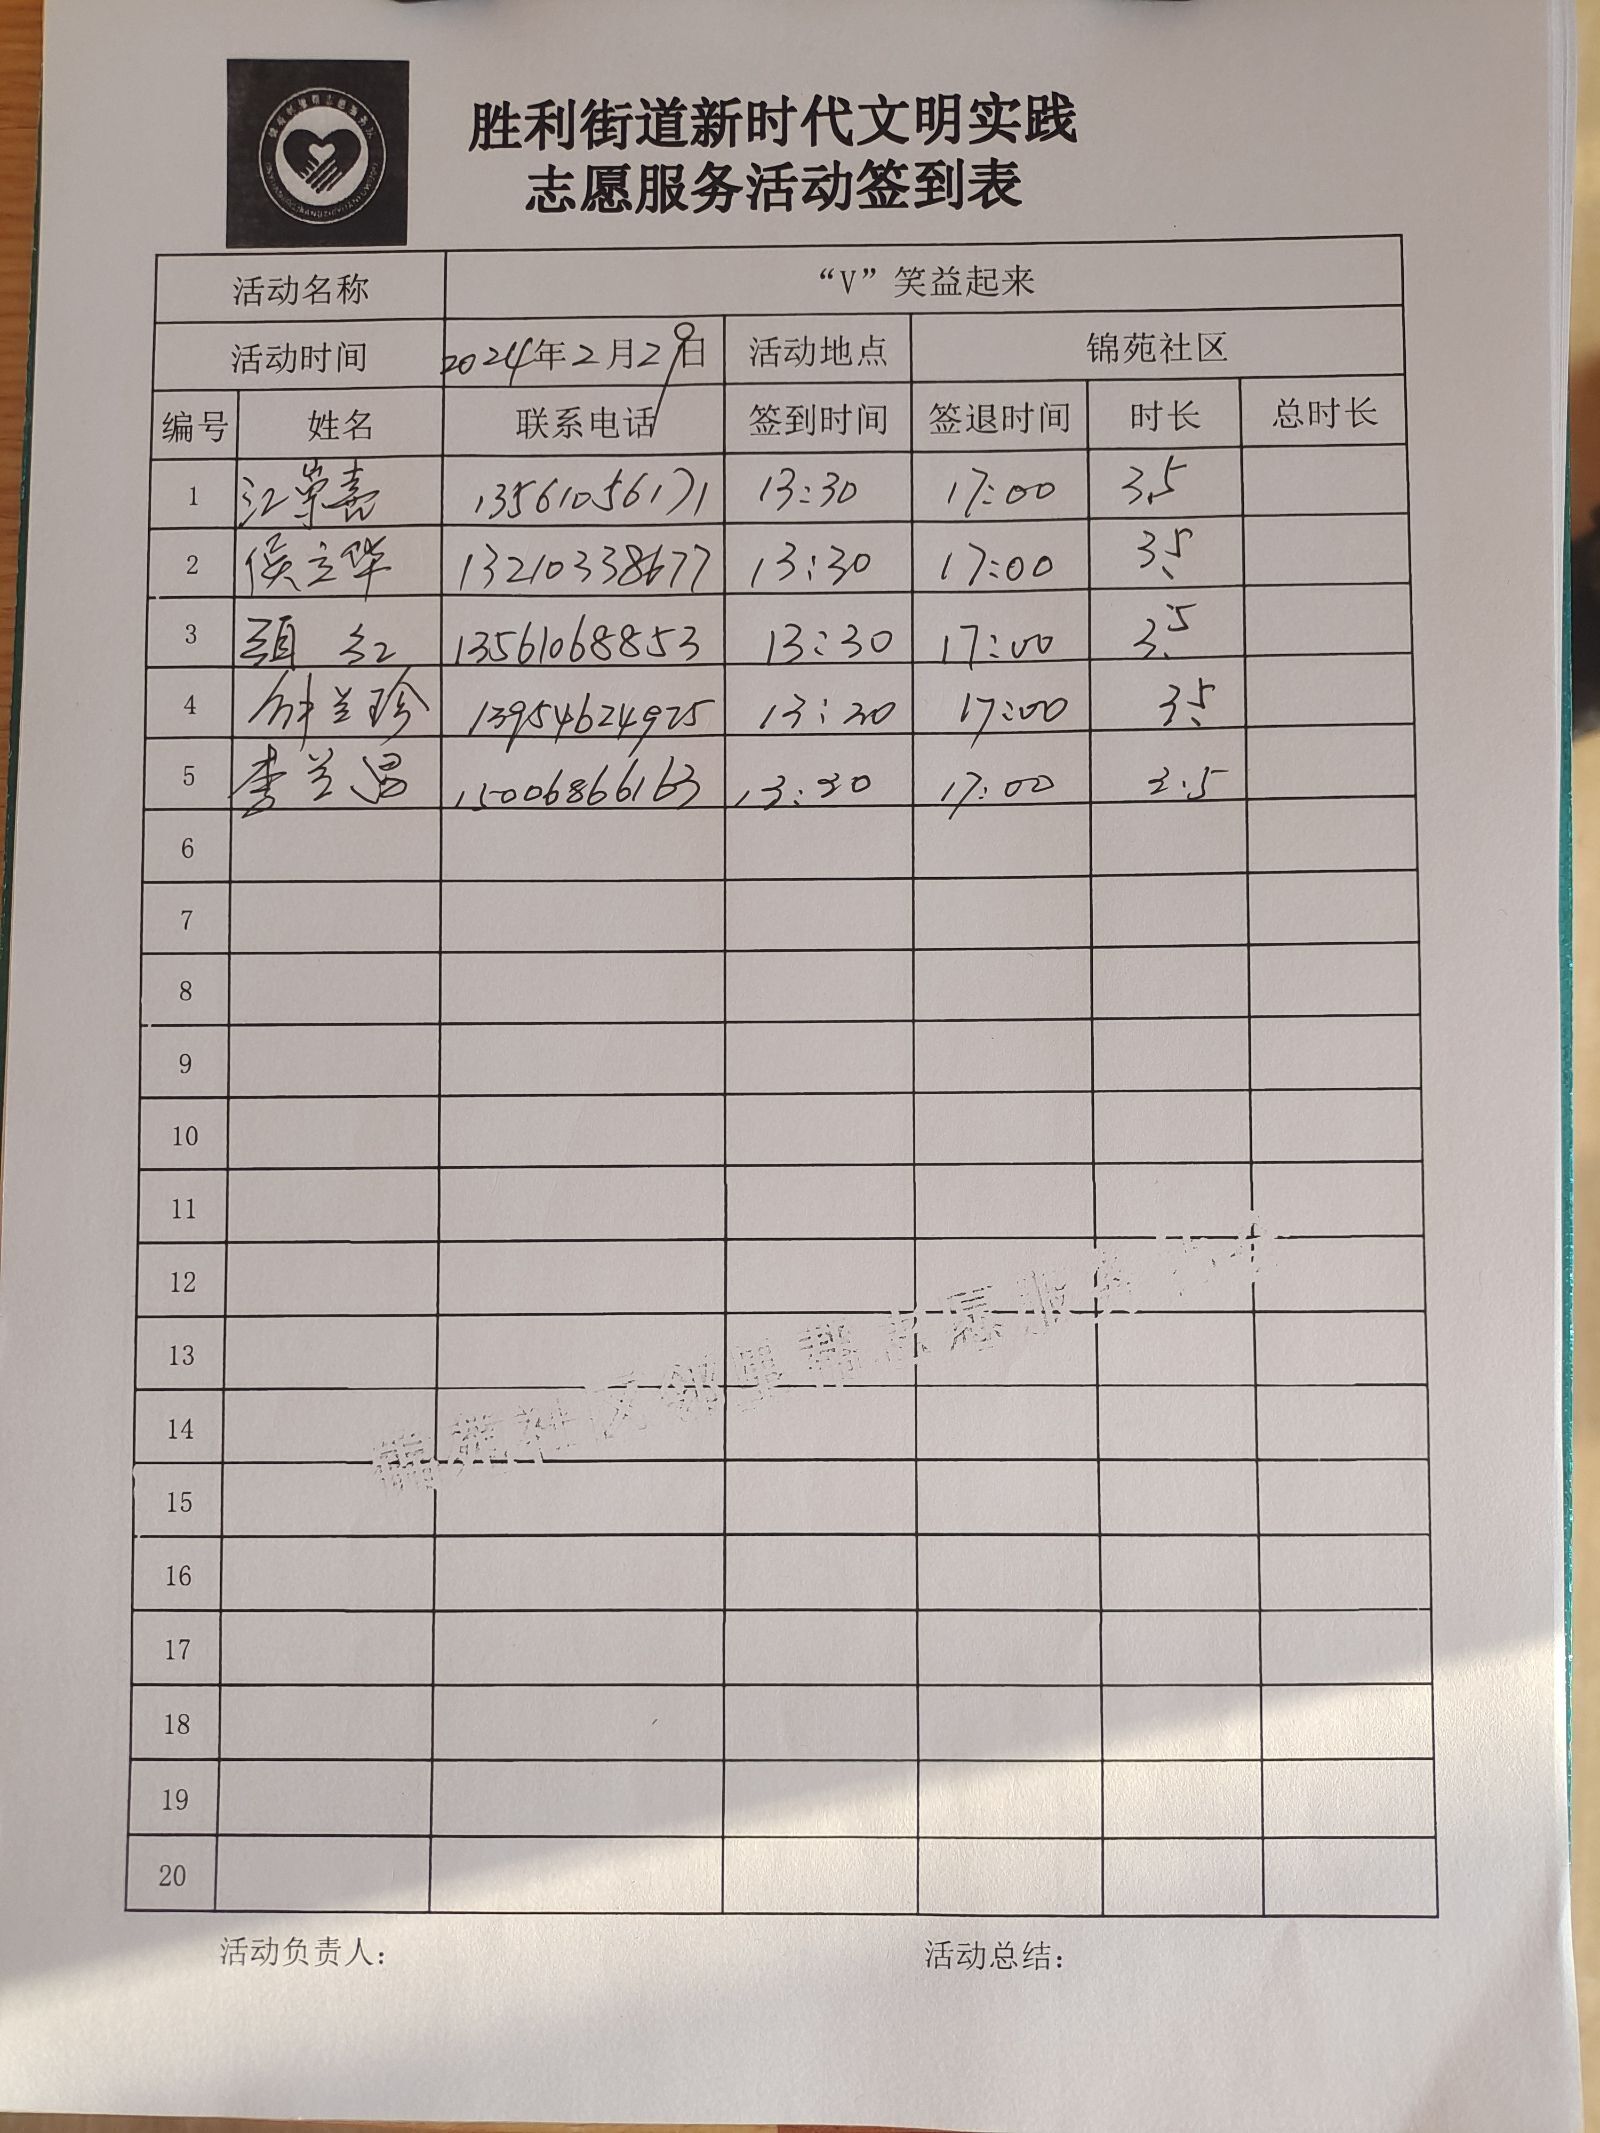 胜利街道新时代文明实践
志愿服务活动签到表
活动名称 “V”笑益起来
活动时间 2024年2月29日 活动地点 锦苑社区
编号 姓名 联系电话 签到时间 签退时间 时长 总时长
1 江崇熹 13561056171 13:30 17:00 3.5
2 侯立华 13210338677 13:30 17:00 3.5
3 红 13561068853 13:30 17:00 3.5
4 钟兰珍 13954624925 13:30 17:00 3.5
5 李兰 15006866163 13:30 17:00 3.5
6
7
8
9
10
11
12
13
14
15
16
17
18
19
20
锦苑社区邻里帮志愿服务
活动负责人： 活动总结：